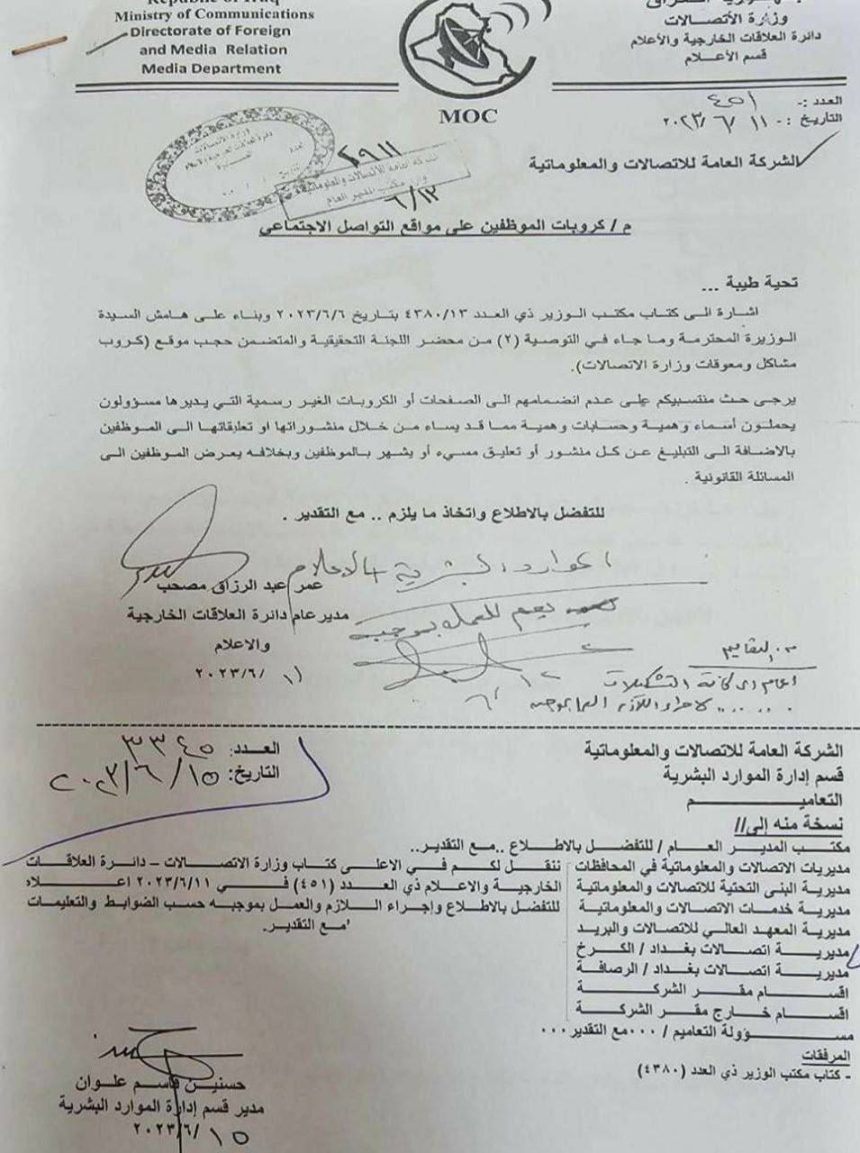 Republic of Iraq
Ministry of Communications
Directorate of Foreign
and Media Relation
Media Department
MOC
وزارة الأتصالات
دائرة العلاقات الخارجية والأعلام
قسم الأعلام
العدد :- ٤٥١
التاريخ :- ١١ / ٦ /٢٠٢٣
٢٩١١
٦/١٣
الشركة العامة للاتصالات والمعلوماتية
م / كروبات الموظفين على مواقع التواصل الاجتماعي
تحية طيبة ...
اشارة الى كتاب مكتب الوزير ذي العدد ٤٣٨٠/١٣ بتاريخ ٢٠٢٣/٦/٦ وبناء على هامش السيدة
الوزيرة المحترمة وما جاء في التوصية (٢) من محضر اللجنة التحقيقية والمتضمن حجب موقع (كروب
مشاكل ومعوقات وزارة الاتصالات).
يرجى حث منتسبيكم على عدم انضمامهم الى الصفحات أو الكروبات الغير رسمية التي يديرها مسؤولون
يحملون أسماء وهمية وحسابات وهمية مما قد يساء من خلال منشوراتها او تعليقاتها الى الموظفين
بالاضافة الى التبليغ عن كل منشور أو تعليق مسيء أو يشهر بالموظفين وبخلافه يعرض الموظفين الى
المسائلة القانونية .
للتفضل بالاطلاع واتخاذ ما يلزم .. مع التقدير .
الموارد البشرية + الاعلام
يعمم للعمل بموجبه
عمر عبد الرزاق مصحب
مدير عام دائرة العلاقات الخارجية
والاعلام
١١ /٢٠٢٣/٦
الشركة العامة للاتصالات والمعلوماتية
قسم إدارة الموارد البشرية
التعاميـــــــم
العدد: ٣٣٤٥
التاريخ: ٢٠٢٣/٦/١٥
نسخة منه إلى//
مكتـب المديـر العـام / للتفضـل بالاطـلاع ..مـع التقديـر..
مديريات الاتصالات والمعلوماتية في المحافظات
مديرية البنى التحتية للاتصالات والمعلوماتية
مديرية خدمات الاتصالات والمعلوماتية
مديرية المعهد العالي للاتصالات والبريد
مديريـة اتصـالات بغـداد / الكـرخ
مديريـة اتصـالات بغـداد / الرصافـة
اقسـام مقـر الشركـة
اقسـام خـارج مقـر الشركـة
ننقل لكـم فـي الاعلـى كتـاب وزارة الاتصـالات – دائـرة العلاقـات
الخارجية والاعلام ذي العـدد (٤٥١) فـي ٢٠٢٣/٦/١١ اعـلاه
للتفضل بالاطلاع وإجراء اللازم والعمل بموجبه حسب الضوابط والتعليمات
مـع التقديـر.
مسـؤولة التعاميم / ٠٠٠مع التقدير٠٠٠
المرفقات
- كتاب مكتب الوزير ذي العدد (٤٣٨٠)
حسنين قاسم علـوان
مدير قسم إدارة الموارد البشرية
٢٠٢٣/٦/ ١٥